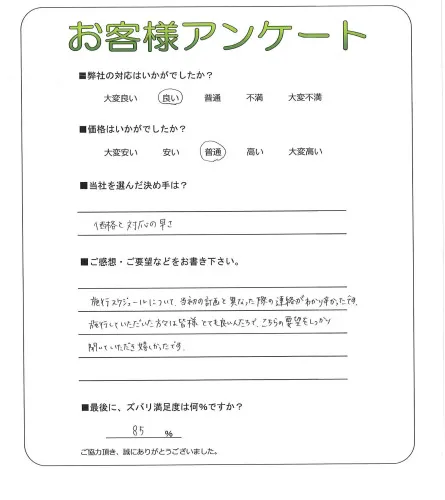 お客様アンケート
■弊社の対応はいかがでしたか？
大変良い 良い 普通 不満 大変不満
■価格はいかがでしたか？
大変安い 安い 普通 高い 大変高い
■当社を選んだ決め手は？
価格と対応の早さ
■ご感想・ご要望などをお書き下さい。
施行スケジュールについて、当初の計画と異なった際の連絡がわかり辛かったです。
施行していただいた方々は皆様とても良い人たちで、こちらの要望をしっかり
聞いていただき嬉しかったです。
■最後に、ズバリ満足度は何%ですか？
85 %
ご協力頂き、誠にありがとうございました。